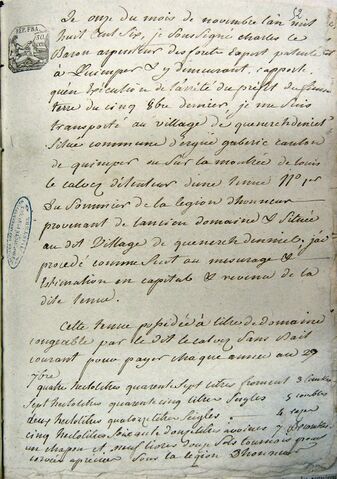 Le onze du mois de novembre l'an mil
huit Cent Six, je Soussigné charles le
Baron arpenteur des forêts Expert patenté
à Quimper & y demeurant, rapporte
qu'en Execution de l'arrêté du préfet du finis
terre du cinq 8bre dernier, je me Suis
transporté au village de quenerehdeniel
Situé commune d'ergué gaberic canton
de quimper ou Sur la montrée de louis
le calvez détenteur d'une tenue N°
du Sommier de la legion d'honneur
provenant de l'ancien domaine & Située
au dit Village de quenerehdeniel, j'ai
procédé comme Suit au mesurage &
Estimation en capital & revenu de la
dite tenue.
Cette tenue possédée à titre de domaine
congeable par le dit le calvez Sans Bail
courant pour payer chaque année au 29
7bre
quatre hectolitres quarente Sept litres froment 3 Combles
Sept hectolitres quarente cinq litres Seigles 5 combles
deux hectolitres quatorze litres Seigles 4 raze
cinq hectolitres Soixante litres avoines 7 Combles
un chapon et neuf livres douze Sols tournois
corvées Sous la legion d'honneur